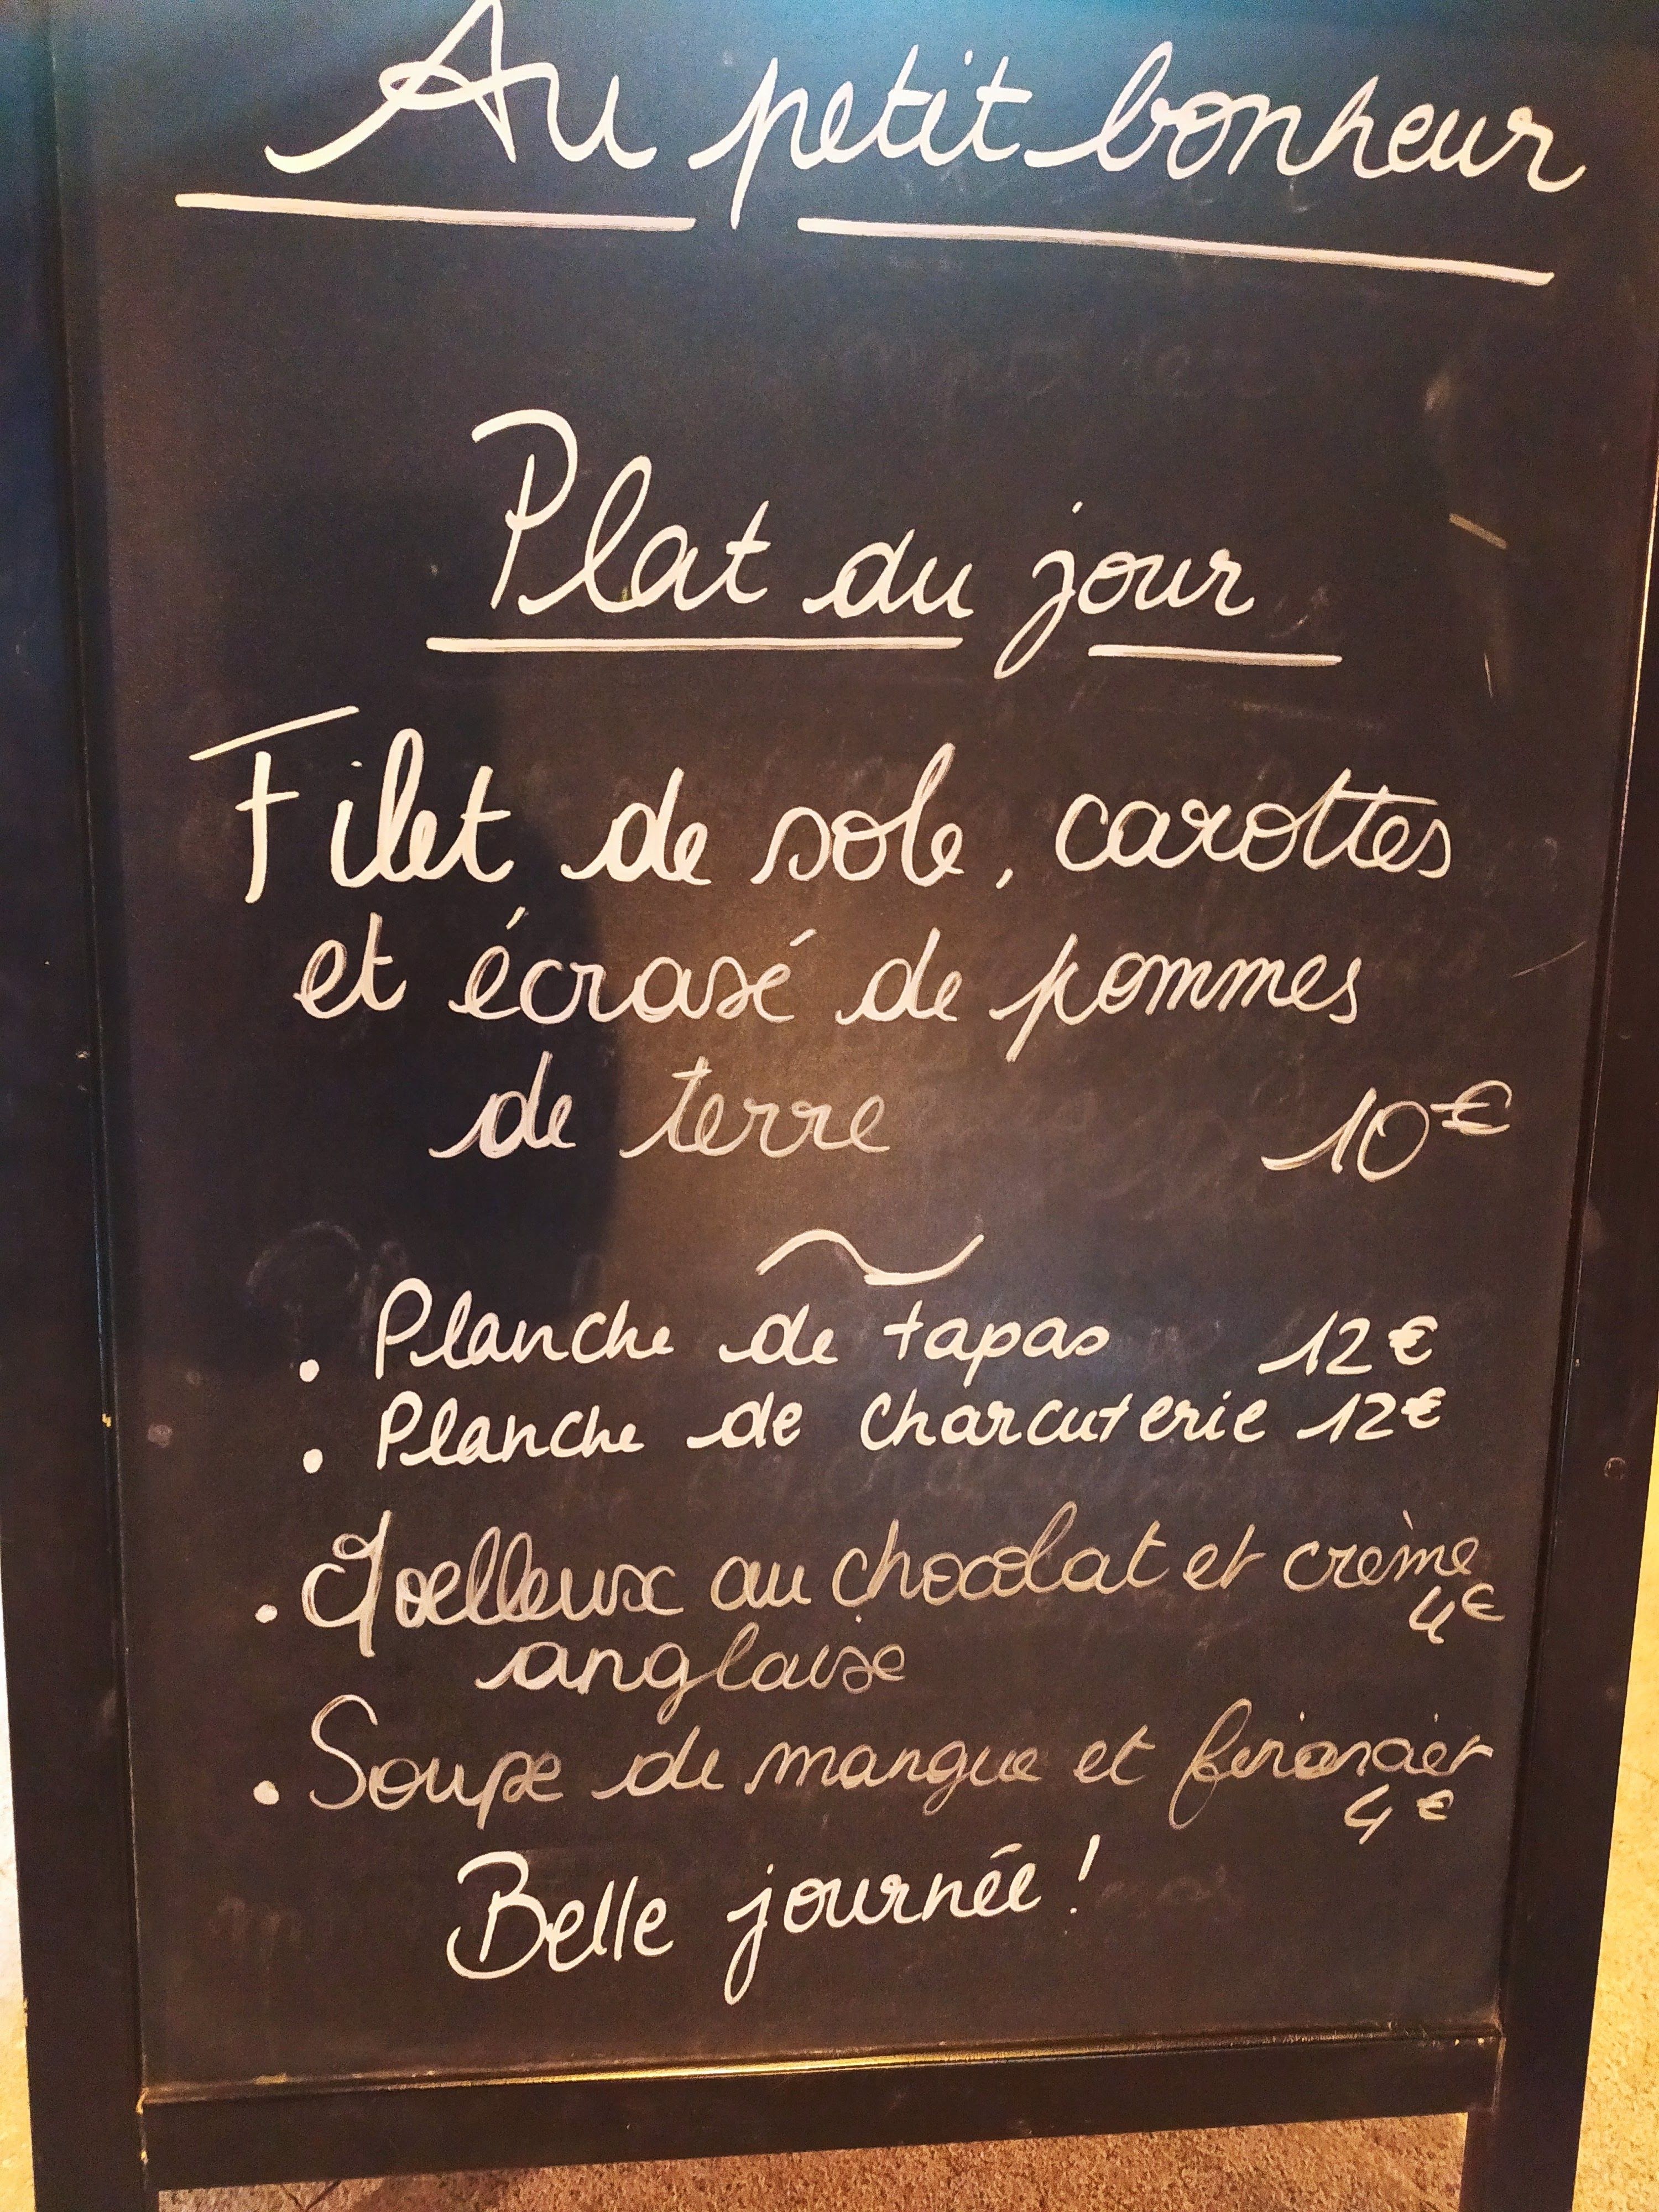 Au petit bonheur
Plat du jour
Filet de sole, carottes
et écrasé de pommes
de terre 10€
• Planche de tapas 12€
• Planche de charcuterie 12€
• Moelleux au chocolat et crème
4€
anglaise
• Soupe de mangue et financier
4€
Belle journée !